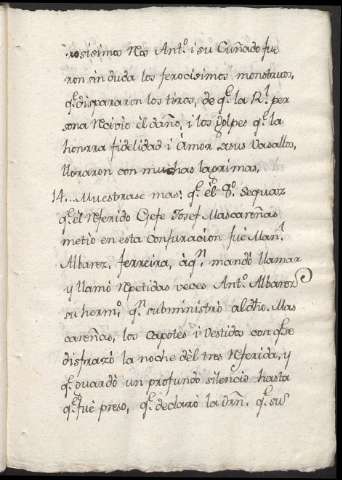 rosisimos Reos Antº. i su Cuñado fue
ron sin duda los ferocisimos monstruos,
q.e dispararon los tiros, de q.e la R.l per
sona Reivio el daño, i los golpes q.e la
honrra fidelidad i Amor a sus Vasallos,
lloraron con muchas lagrimas.
14.. Muestrase mas: q.e el 8º. sequaz
q.e el Referido Gefe Josef Mascareñas
metio en esta Conjuracion fue Man.l
Albarez. Ferreira, à q.n mandò llamar
y llamò Repetidas veces Antº. Albarez
su herm.º q.n subministrò al dho. Mas
careñas, los Capotes i Vestidos con q.e se
disfrazò la noche del tres Referida, y
q.e guardò un profundo silencio hasta
q.e fue preso, q.e declarò la Orn. q.e su